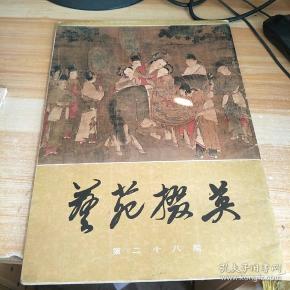 藝苑掇英
第二十八期
孔夫子旧书网